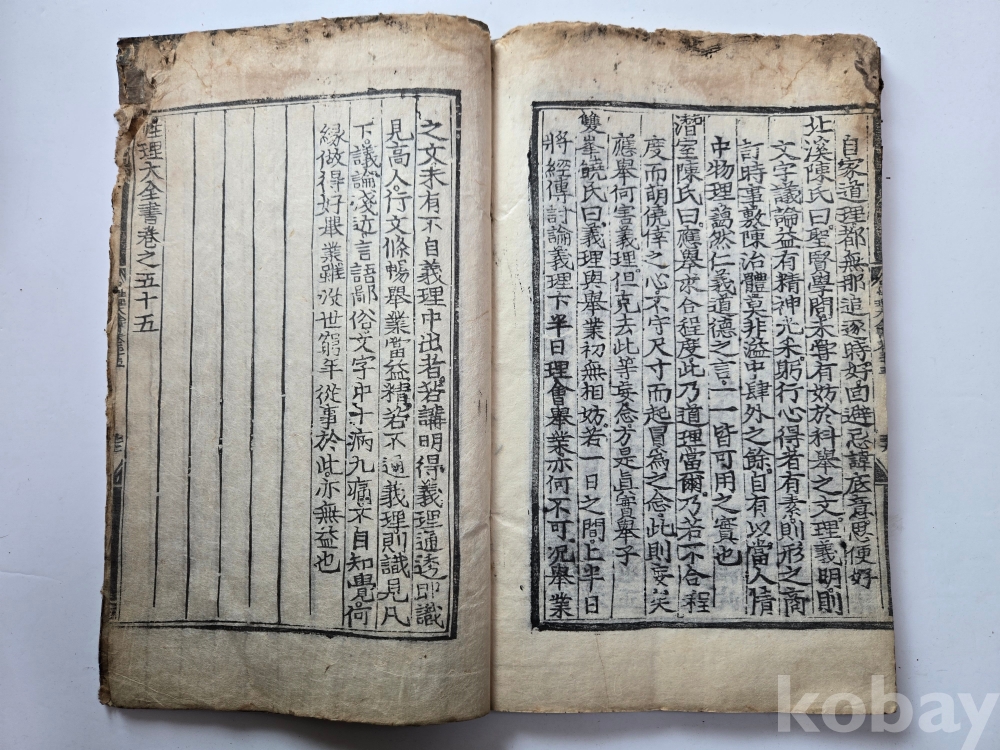 自家道理都無那追逐時好回避忌諱底意思便好
北溪陳氏曰聖賢學問未嘗有妨於科舉之文理義明則
文字議論益有精神光采躬行心得者有素則形之商
訂時事敷陳治體莫非溢中肆外之餘自有以當人情
中物理藹然仁義道德之言一一皆可用之實也
潛室陳氏曰應舉求合程度此乃道理當爾乃若不合程
度而萌僥倖之心不守尺寸而起冒爲之念此則妄矣
應舉何害義理但克去此等妄念方是眞實舉子
雙峯饒氏曰義理與舉業初無相妨若一日之間上半日
將經傳討論義理下半日理會舉業亦何不可況舉業
之文未有不自義理中出者若講明得義理通透卽識
見高人行文條暢舉業當益精若不通義理則識見凡
下議論淺近言語鄙俗文字中十病九痛不自知覺何
緣做得好舉業雖沒世窮年從事於此亦無益也
性理大全書卷之五十五
kobay